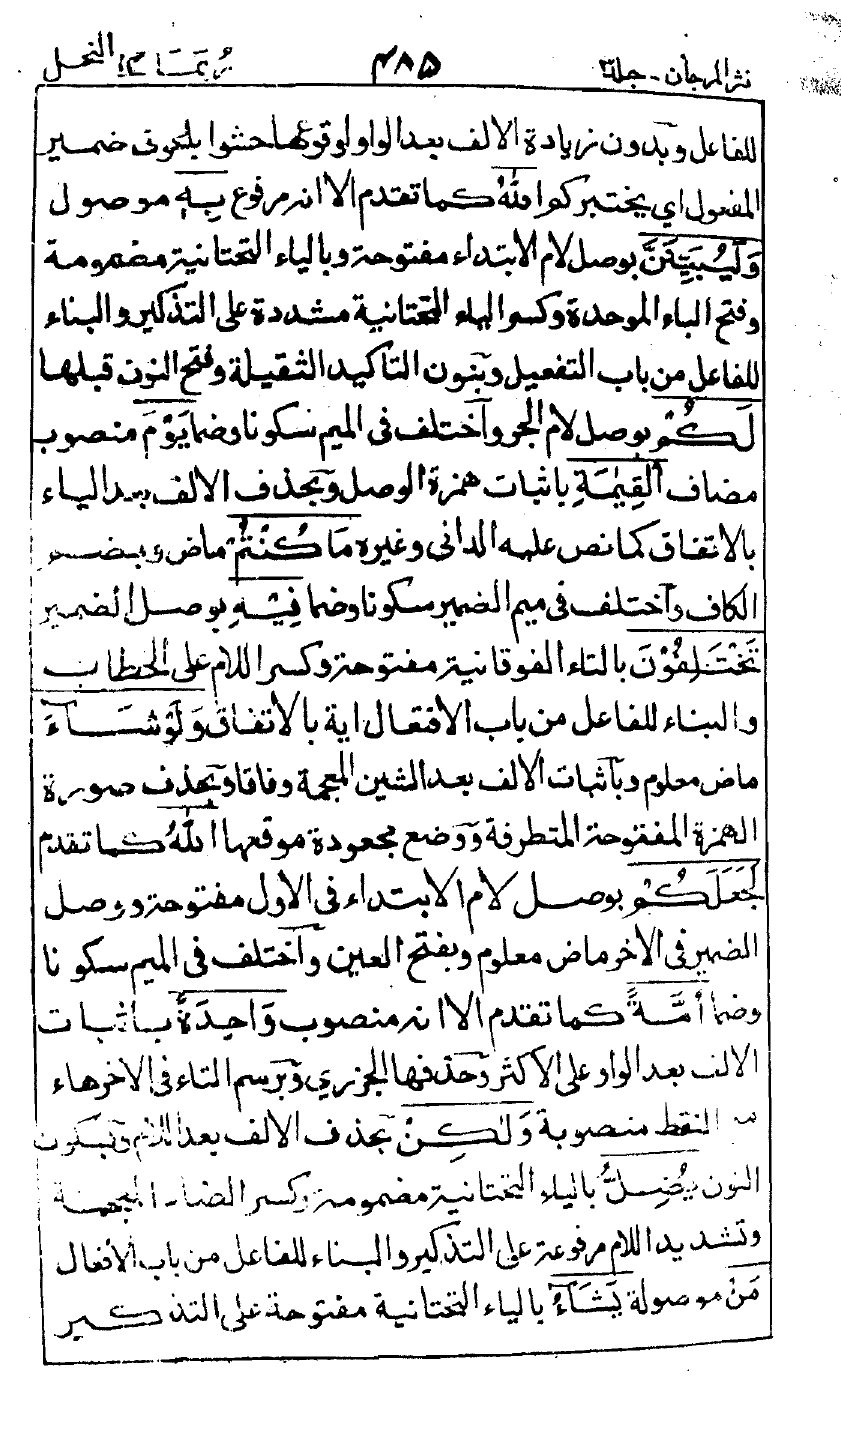 نثر المرجان - جلد ٣ ٤٨٥ ربما ١٤ النحل
للفاعل وبدون زيادة الالف بعد الواو لوقوعها حشوا بلحوق ضمير
المفعول اي يختبركم اللهُ كما تقدم الا انه مرفوع بِهٖ موصول
وَلَيُبَيِّنَنَّ بوصل لام الابتداء مفتوحة وبالياء التحتانية مضمومة
وفتح الباء الموحدة وكسر الياء التحتانية مشددة على التذكير والبناء
للفاعل من باب التفعيل وبنون التاكيد الثقيلة وفتح النون قبلها
لَكُمْ بوصل لام الجر واختلف فى الميم سكونا وضما يَوْمَ منصوب
مضاف الْقِيٰمَةِ باثبات همزة الوصل وبحذف الالف بعد الياء
بالاتفاق كما نص عليه الدانى وغيره مَا كُنْتُمْ ماض وبضم
الكاف واختلف فى ميم الضمير سكونا وضما فِيْهِ بوصل الضمير
تَخْتَلِفُوْنَ بالتاء الفوقانية مفتوحة وكسر اللام على الخطاب
والبناء للفاعل من باب الافتعال اية بالاتفاق وَلَوْ شَآءَ
ماض معلوم وباثبات الالف بعد الشين المعجمة وفاقا وبحذف صورة
الهمزة المفتوحة المتطرفة ووضع مجعودة موقعها اللهُ كما تقدم
لَجَعَلَكُمْ بوصل لام الابتداء فى الاول مفتوحة ووصل
الضمير فى الاخر ماض معلوم وبفتح العين واختلف فى الميم سكونا
وضما اُمَّةً كما تقدم الا انه منصوب وَاحِدَةً باثبات
الالف بعد الواو على الاكثر وحذفها الجزري وبرسم التاء فى الاخر هاء
النقط منصوبة وَلٰكِنْ بحذف الالف بعد اللام وبسكون
النون يُضِلُّ بالياء التحتانية مضمومة وكسر الضاد المعجمة
وتشديد اللام مرفوعة على التذكير والبناء للفاعل من باب الافعال
مَنْ موصولة يَشَآءُ بالياء التحتانية مفتوحة على التذكير